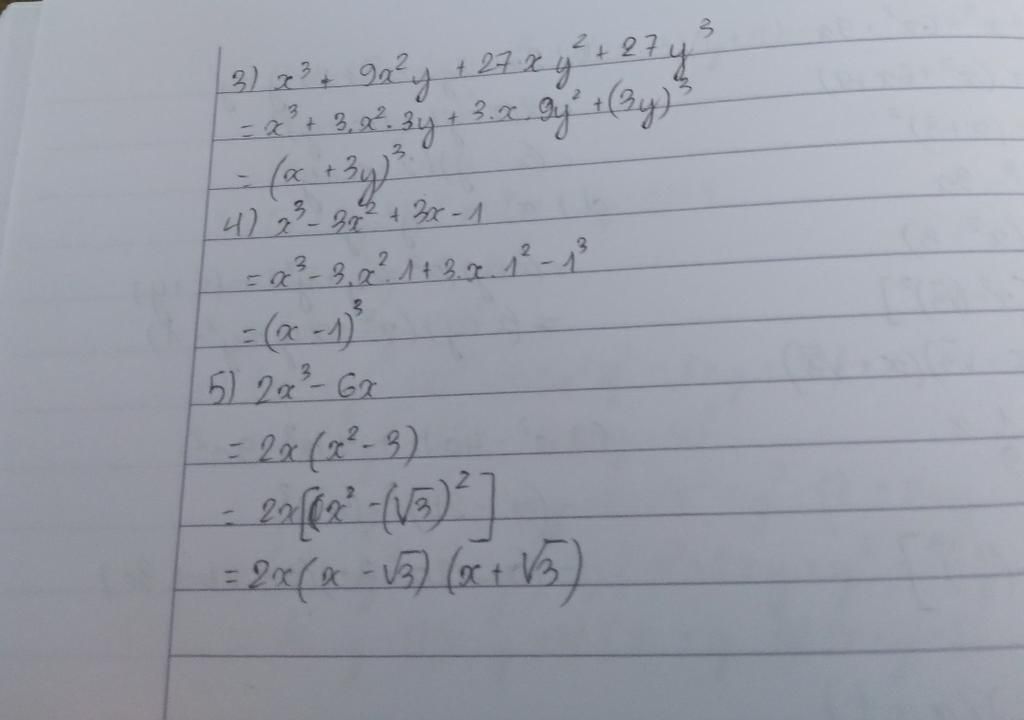 3) x³ + 9x²y + 27.xy² + 27y³
= x³ + 3.x².3y + 3.x.9y² + (3y)³
= (x + 3y)³
4) x³ - 3x² + 3x - 1
= x³ - 3.x².1 + 3.x.1² - 1³
= (x - 1)³
5) 2x³ - 6x
= 2x(x² - 3)
= 2x[x² - (√3)²]
= 2x(x - √3)(x + √3)